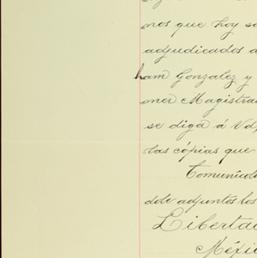 nos que hoy so
adjudicados a
ham Gonzalez y
mer Magistra
se diga á Vd
tas cópias que
Comuníco
dole adjuntos los
Liberta
Méxi